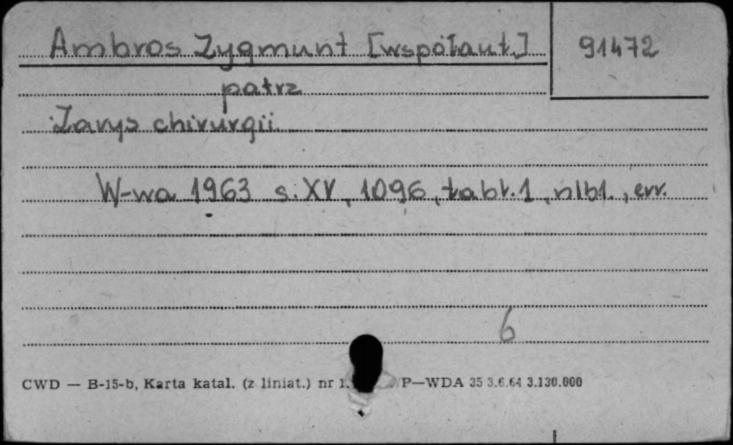 Ambros Zygmunt [współaut.]
91472
patrz
Zarys chirurgii.
W-wa 1963 s. XV, 1096, tabl. 1, nlb1., err.
6
CWD — B-15-b, Karta katal. (z liniat.) nr 1. P—WDA 35 3.6.64 3.130.000